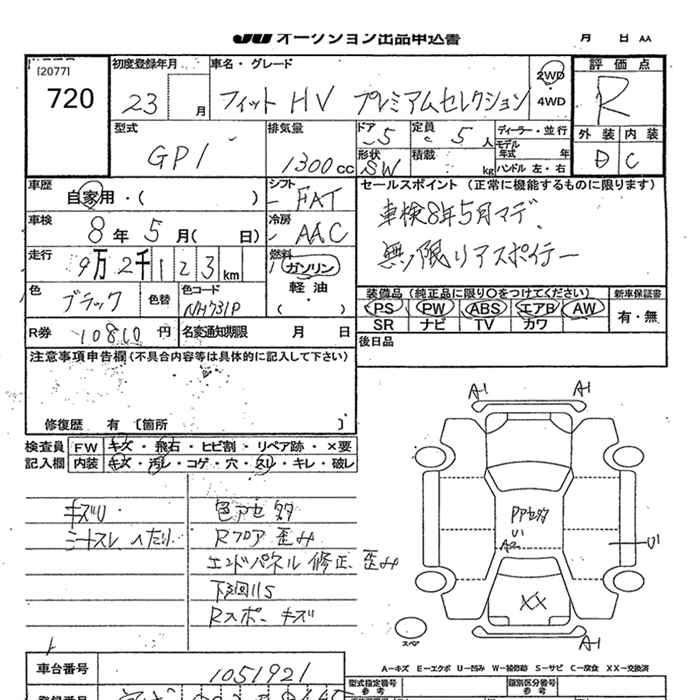 JU オークション出品申込書
月 日 AA
[2077]
720
初度登録年月
23 月
車名・グレード
フィット HV プレミアムセレクション
2WD
4WD
評価点
R
外装 内装
D C
型式
GP1
排気量
1300 cc
ドア 5
定員 5 人
ディーラー・並行
モデル年式 年
形状 SW
積載 kg
ハンドル 左・右
車歴
自家用・( )
シフト
FAT
セールスポイント (正常に機能するものに限ります)
車検8年5月マデ
無限リアスポイラー
車検
8 年 5 月( 日)
冷房
AAC
走行
9万 2千 1 2 3 km
燃料
ガソリン
軽油
( )
色
ブラック
色替
色コード
NH731P
装備品 (純正品に限り○をつけてください)
PS PW ABS エアB AW
SR ナビ TV カワ
新車保証書
有・無
R券
10800 円
名変通知期限 月 日
後日品
注意事項申告欄(不具合内容等は具体的に記入して下さい)
修復歴 有 〔箇所 〕
検査員記入欄
FW キズ・飛石・ヒビ割・リペア跡・×要
内装 キズ・汚レ・コゲ・穴・スレ・キレ・破レ
キズU
ミナスレ ヘタリ
色アセ 多
Rフロア 歪み
エンドパネル 修正、歪み
下廻リS
Rスポ- キズ
A1 A1
アセ多
U1
A2
U1
XX
A1
スペア
A-キズ E-エクボ U-凹み W-補修跡 S-サビ C-腐食 XX-交換済
車台番号
1051921
型式指定番号
参考
類別区分番号
参考
登録番号